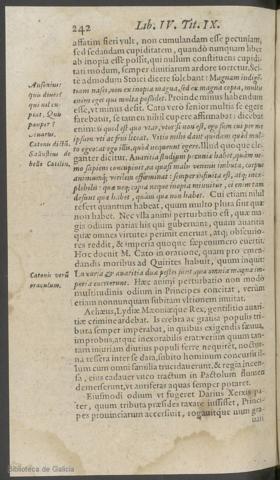 242 Lib. IV. Tit. IX.
affatim fieri vult, non cumulandam esse pecuniam,
sed sedandam cupiditatem, quando nunquam liber
ab inopia esse possit, qui nullum constituens cupidi-
tati modum, semper divitiarum ardore torretur. Sci-
tè admodum Stoici dicere solebant: Magnam indigen-
tiam nasci, non ex inopia magna, sed ex magna copia, multis
enim eget qui multa possidet. Proinde minus habendum
esse, ut minus desit. Cato verò senior multis se egere
fatebatur, se tamen nihil cupere affirmabat: dicebat
enim:
Illud quoque ele-
ganter dicitur. Avaritia studium pecunia habet, quam ne-
mo sapiens concupivit, ea quasi malis venenis imbuta, corpus
animumque virilem effœminat: semper infinita est, atque inex-
plebilis: quæ neque copia neque inopia minuitur, et enim tam
desunt quæ habet, quam quæ non habet. Cui etiam nihil
esset quantum habeat, quam multo plura sint quæ
non habet. Nec ulla animi perturbatio est, quæ ma-
gis odium pariat his qui gubernant, quam avaritia
quæ omnes virtutes penitus enervat, atque obscurio-
res reddit, & imperia quoque sæpenumero evertit.
Hoc docuit M. Cato in oratione, quam pro emen-
dandis moribus ad Quirites habuit, quum inquit:
Luxuria & avaritia duæ pestes sunt quæ omnia magna im-
peria everterunt. Hæc animi perturbatio non modò
multitudinis odium in Principes concitat, verum
etiam nonnunquam subitam ultionem invitat.
Achæus, Lydiæ Mæoniæque Rex, gentilitio avari-
tiæ crimine ardebat. Is crebra ac gravia populis tri-
buta semper imperabat, in quibus exigendis sævus,
improbus, atque inexorabilis erat: verùm quum tan-
tam injuriam diutius populi ferre nequirent, noctur-
na tessera inter se data, subito hominum concursu il-
lum cum omni familia trucidaverunt, & regia incen-
sa, ejus cadaver unco tractum in Pactolum flumen
demerserunt, ut auriferas aquas semper potaret.
Ejusmodi odium ut fugeret Darius Xerxis pa-
ter, quum tributa præsides taxare jussisset, Princi-
pes provinciarum accersivit, rogavitque num gra-
Ausonius:
quis dives?
qui nil cu-
piat. Quis
pauper?
Avarus.
Catonis dictū.
Salustius de
bello Catilin.
Catonis verū
oraculum.
Biblioteca de Galicia